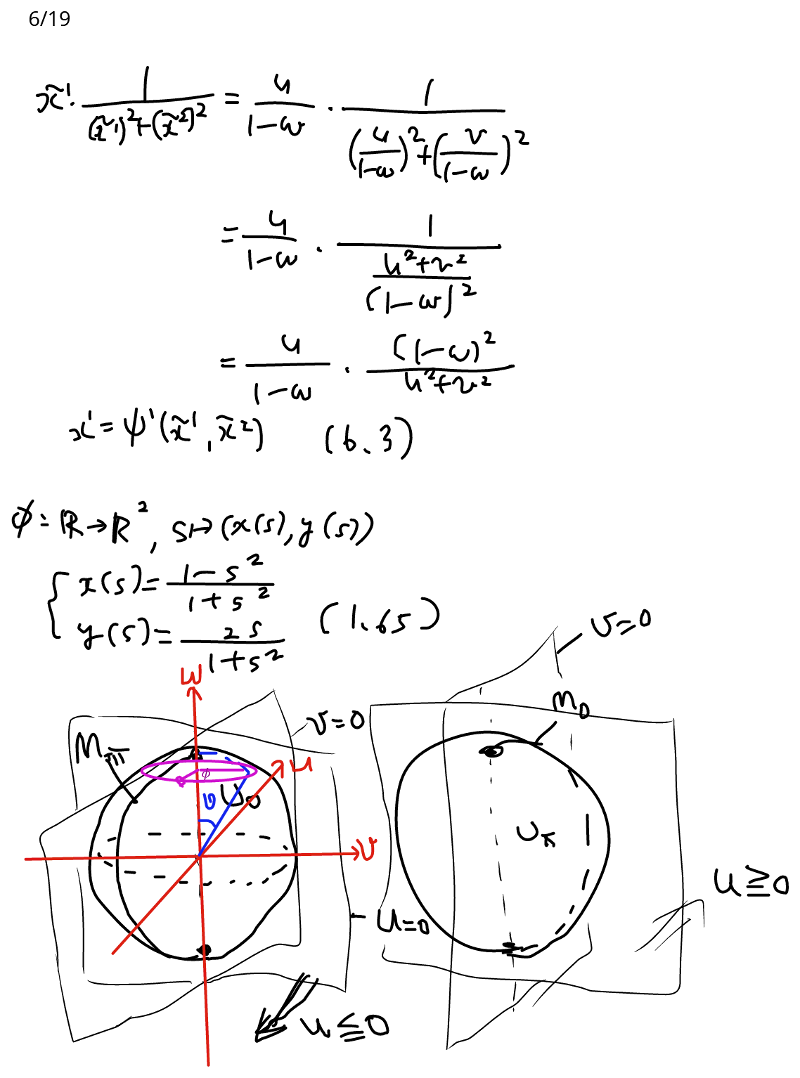 6/19
x̃¹·1/((x̃¹)²+(x̃²)²) = u/(1-w) · 1/((u/(1-w))²+(v/(1-w))²)
= u/(1-w) · 1/((u²+v²)/(1-w)²)
= u/(1-w) · (1-w)²/(u²+v²)
x¹=ψ¹(x̃¹,x̃²) (6.3)
φ:ℝ→ℝ², s↦(x(s),y(s))
{ x(s)=(1-s²)/(1+s²)
y(s)=2s/(1+s²) (1.65)
v=0
w
M₀
v=0
M_π
u
φ
θ
U₀
U_π
v
u≧0
u=0
u≦0